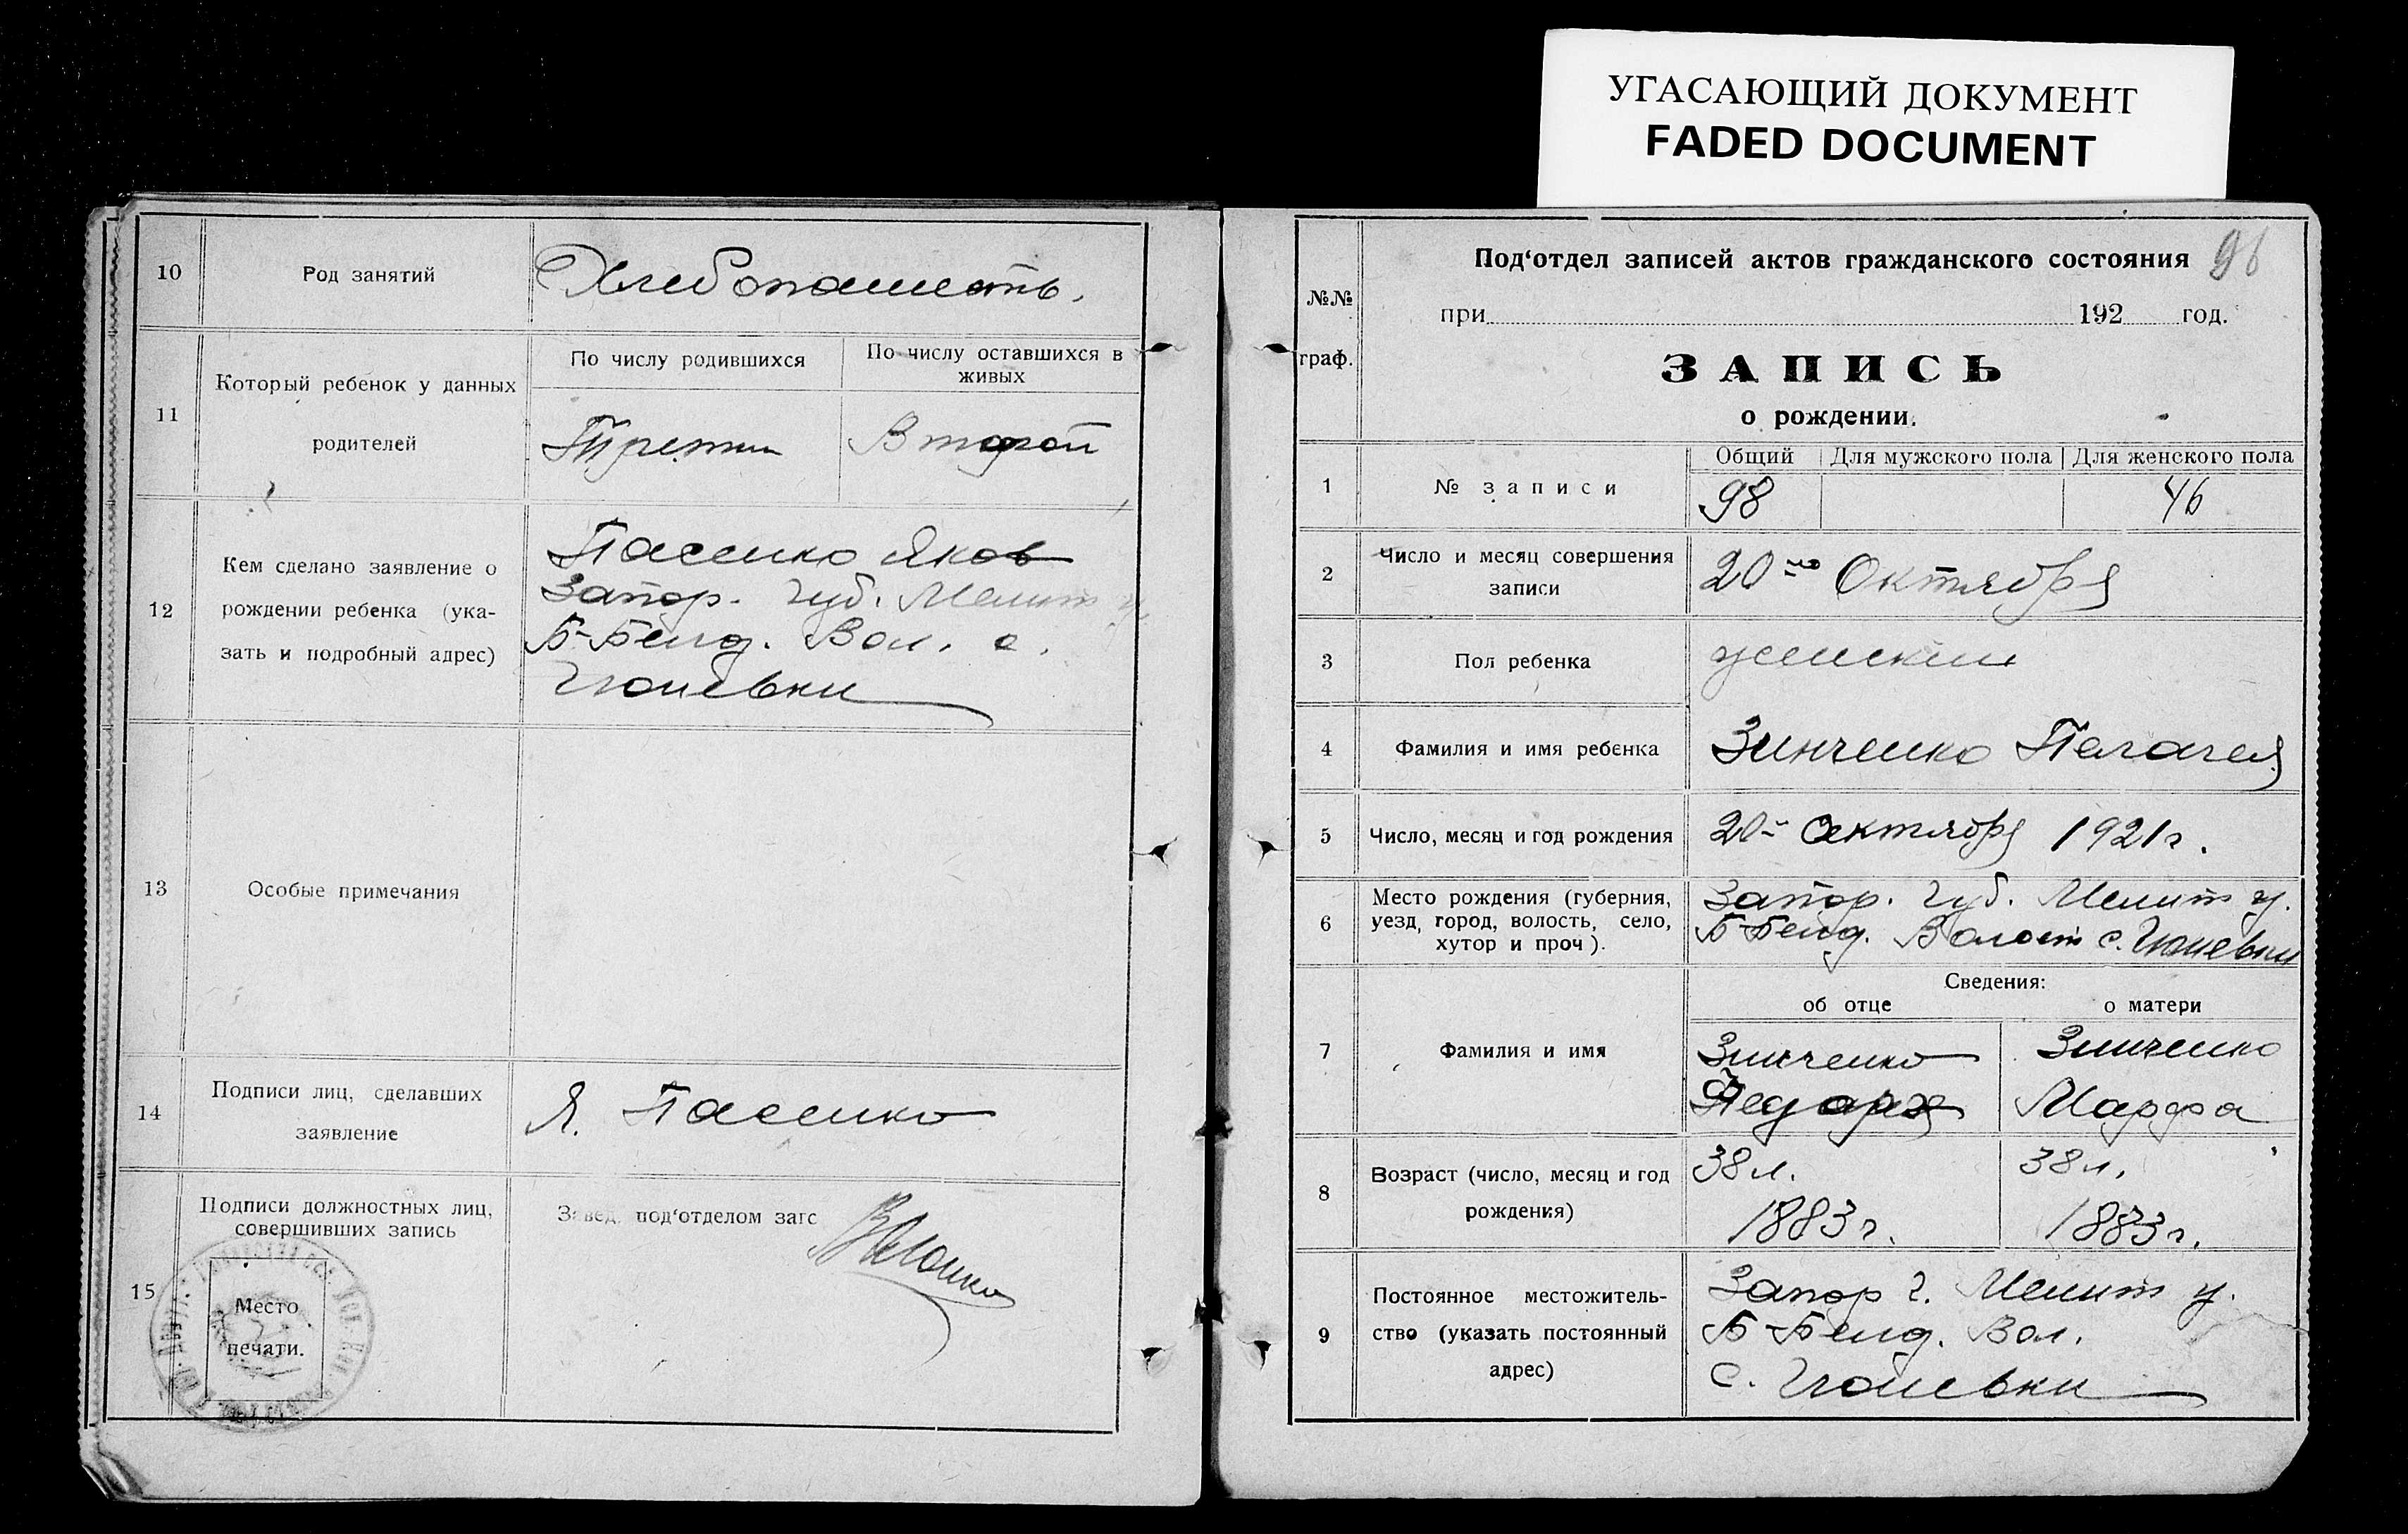 УГАСАЮЩИЙ ДОКУМЕНТ
FADED DOCUMENT
10
Род занятий
Хлебопашеств.
11
Который ребенок у данных
родителей
По числу родившихся
По числу оставшихся в
живых
Третий
Второй
12
Кем сделано заявление о
рождении ребенка (ука-
зать и подробный адрес)
Пасенко Яков
Запор. губ. Мелит у.
Б-Белд. Вол. с.
Гюневки
13
Особые примечания
14
Подписи лиц, сделавших
заявление
Я. Пасенко
15
Подписи должностных лиц,
совершивших запись
Место
печати.
Завед. под'отделом загс
№№
граф.
Под'отдел записей актов гражданского состояния
96
при 192 год.
ЗАПИСЬ
о рождении.
1
№ записи
Общий
Для мужского пола
Для женского пола
98
46
2
Число и месяц совершения
записи
20го Октября
3
Пол ребенка
женский
4
Фамилия и имя ребенка
Зинченко Пелагея
5
Число, месяц и год рождения
20- Октября 1921г.
6
Место рождения (губерния,
уезд, город, волость, село,
хутор и проч).
Запор. Губ. Мелит у.
Б-Белд. Волост с. Гюневки
Сведения:
об отце
о матери
7
Фамилия и имя
Зинченко
Федор
Зинченко
Марфа
8
Возраст (число, месяц и год
рождения)
38 л.
1883 г.
38 л.
1883 г.
9
Постоянное местожитель-
ство (указать постоянный
адрес)
Запор г. Мелит у.
Б-Белд. Вол.
с. Гюневки